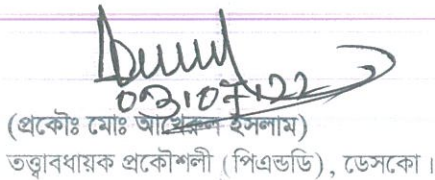 03/07/22
(প্রকৌঃ মোঃ আখেরুল ইসলাম)
তত্ত্বাবধায়ক প্রকৌশলী (পিএন্ডডি), ডেসকো।